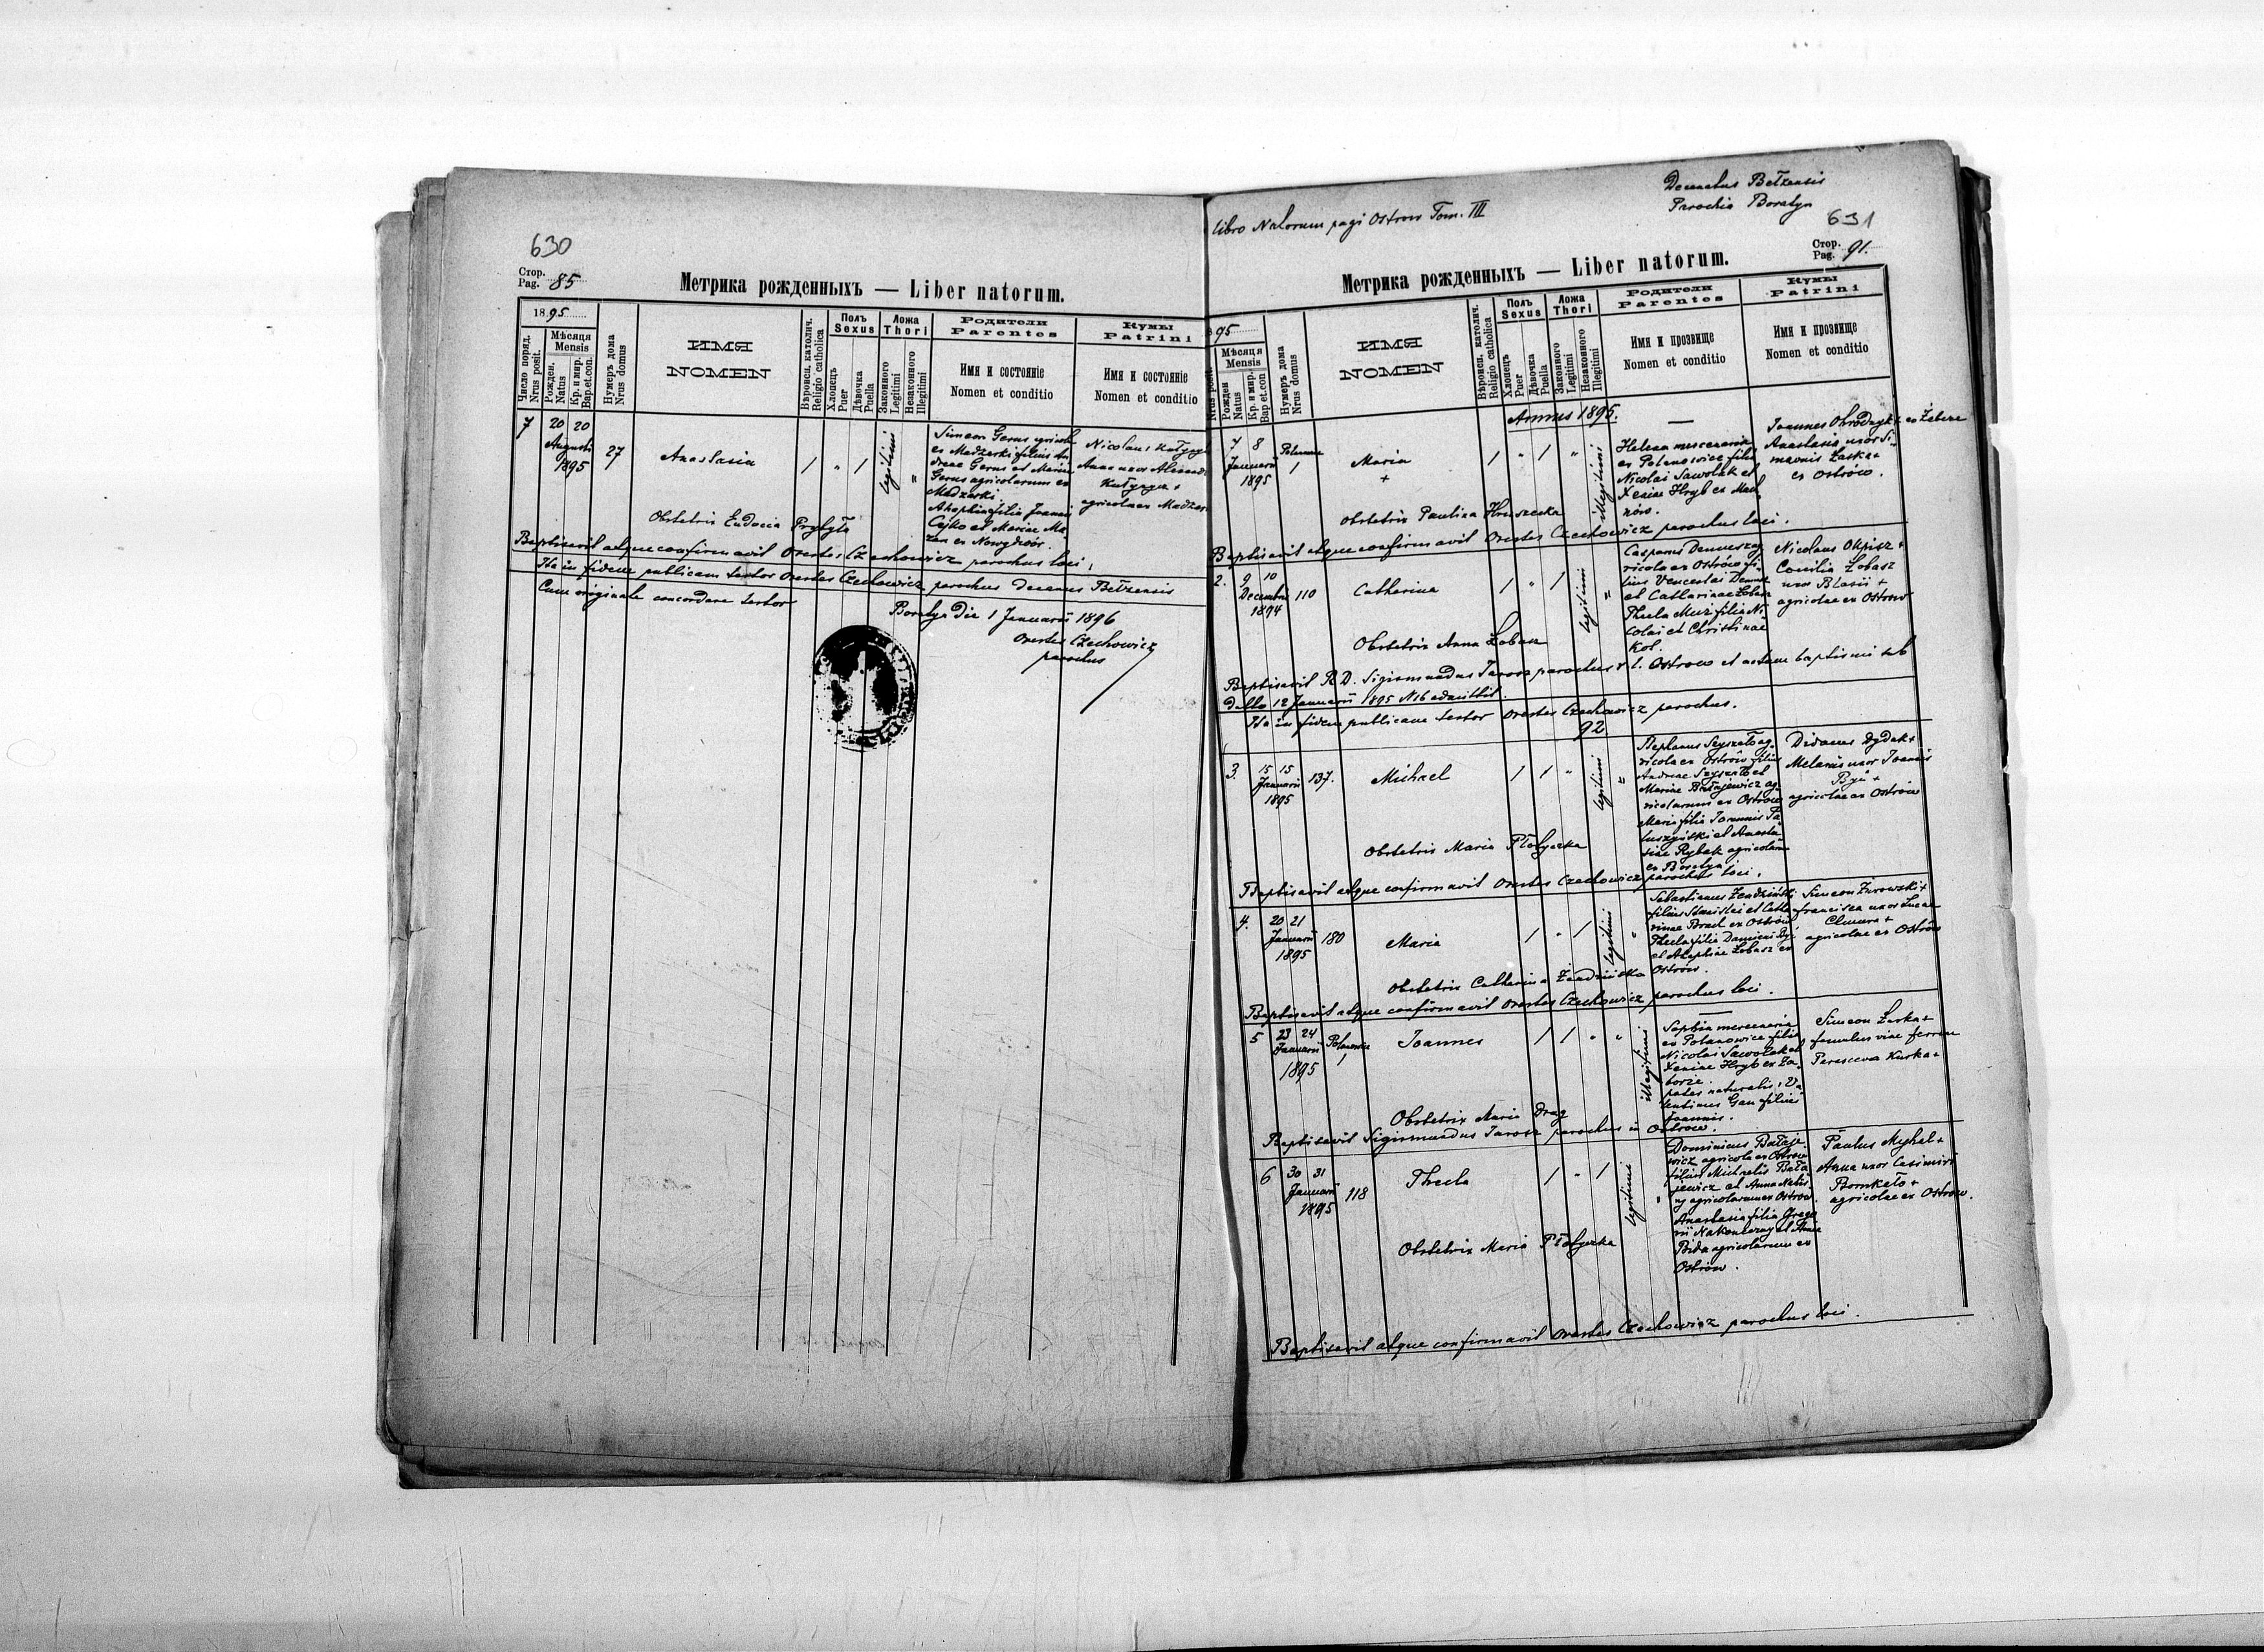 630
Стор.
Pag. 85
Метрика рожденныхъ — Liber natorum.
1895
Число поряд.
Nrus posit.
Мѣсяця
Mensis
Рожден.
Natus
Кр. и мир.
Bap. et. con.
Нумеръ дома
Nrus domus
ИМЯ
NOMEN
Вѣроисп. католич.
Religio catholica
Полъ
Sexus
Хлопецъ
Puer
Дѣвочка
Puella
Ложа
Thori
Законного
Legitimi
Незаконного
Illegitimi
Родители
Parentes
Имя и состояніе
Nomen et conditio
Кумы
Patrini
Имя и состояніе
Nomen et conditio
7
20 20
Augusti
1895
27
Anastasia
1 " 1
legitimi
"
Simeon Gerus agricola
ex Madzarki filius An
dreae Gerus et Mariae
Gerus agricolarum ex
Madzarki.
Ahaphia filia Joannis
Cajko et Mariae Ma
zan ex Nowydwór.
Nicolaus
Anna uxor
agricolae ex
Obstetrix Eudocia Prybyła
Baptisavit atque confirmavit Orestes Czechowicz parochus loci.
Ita in fidem publicam testor Orestes Czechowicz parochus decanus Bełzensis
Cum originale concordare testor
Boratyn Die 1 Januarii 1896
Orestes Czechowicz
parochus
libro Natorum pagi Ostrow Tom. III
Decanatus Bełzensis
Parochia Boratyn
631
Стор.
Pag. 91.
Метрика рожденныхъ — Liber natorum.
95
Nrus posit.
Мѣсяця
Mensis
Рожден
Natus
Кр. и мир.
Bap et. con
Нумеръ дома
Nrus domus
ИМЯ
NOMEN
Вѣроисп. католич.
Religio catholica
Полъ
Sexus
Хлопецъ
Puer
Дѣвочка
Puella
Ложа
Thori
Законного
Legitimi
Незаконного
Illegitimi
Родители
Parentes
Имя и прозвище
Nomen et conditio
Кумы
Patrini
Имя и прозвище
Nomen et conditio
Annus 1895.
7 8
Januarii
1895
1
Maria
+
1 " 1 "
illegitimi
Helena mercenaria
ex Potanowice filia
Nicolai Sawolak et
Xeniae Hryb ex
Joannes
Anastasia uxor Si
meonis Łaska +
ex Ostrów.
Obstetrix Paulina Hruszecka
Baptisavit atque confirmavit Orestes Czechowicz parochus loci.
2.
9 10
Decembris
1894
110
Catharina
1 " 1
legitimi
"
Casparus
ricola ex Ostrów fi
lius Venceslai
et Catharinae Łobasz
Thecla Muz filia Ni
colai et Christinae
Kot.
Nicolaus Okpisz +
Conilia Łobasz
uxor Blasii +
agricolae ex Ostrow
Obstetrix Anna Łobasz
Baptisavit R. D. Sigismundus Jarosz parochus r. l. Ostrow et actum baptismi sub
dtto 12 Januarii 1895 N 16
Ita in fidem publicam testor Orestes Czechowicz parochus.
92
3.
15 15
Januarii
1895
137.
Michael
1 1 "
legitimi
"
Stephanus Szyszło ag
ricola ex Ostrów filius
Andreae Szyszło et
Mariae Bałajewicz ag
ricolarum ex Ostrow
Maria filia Joannis
et Anasta
siae Rybak agricolarum
ex Boratyn
Didacus Dydak +
Melania uxor Joannis
Byś +
agricolae ex Ostrów
Obstetrix Maria Płotyczka
Baptisavit atque confirmavit Orestes Czechowicz parochus loci.
4.
20 21
Januarii
1895
180
Maria
1 " 1
legitimi
"
Sebastianus Żendziński
filius Stanislai et Catha
rinae ex Ostrów
Thecla filia Damiani
et Ahaphiae Łobasz ex
Ostrów.
Simeon Żurowski +
Francisca uxor Lucae
Chmura +
agricolae ex Ostrów
Obstetrix Catharina Żendzińska
Baptisavit atque confirmavit Orestes Czechowicz parochus loci.
5
23 24
Januarii
1895
1
Joannes
1 1 " "
illegitimi
Sophia mercenaria
ex Potanowice filia
Nicolai Sawolak et
Xeniae Hryb ex Za
borze.
pater naturalis, Va
lentinus Gau filius
Joannis.
Simeon Łaska +
famulus viae ferreae
Parasceva Kurka +
Obstetrix Maria Drag
Baptisavit Sigismundus Jarosz parochus in Ostrow.
6
30 31
Januarii
1895
118
Thecla
1 " 1
legitimi
"
Dominicus Bałaje
wicz agricola ex Ostrow
filius Michaelis Bała
jewicz et Anna
agricolarum ex Ostrow.
Anastasia filia Grego
rii Nakoneczny et Annae
Bida agricolarum ex
Ostrów.
Paulus Myhal +
Anna uxor Casimiri
+
agricolae ex Ostrow.
Obstetrix Maria Płotyczka
Baptisavit atque confirmavit Orestes Czechowicz parochus loci.